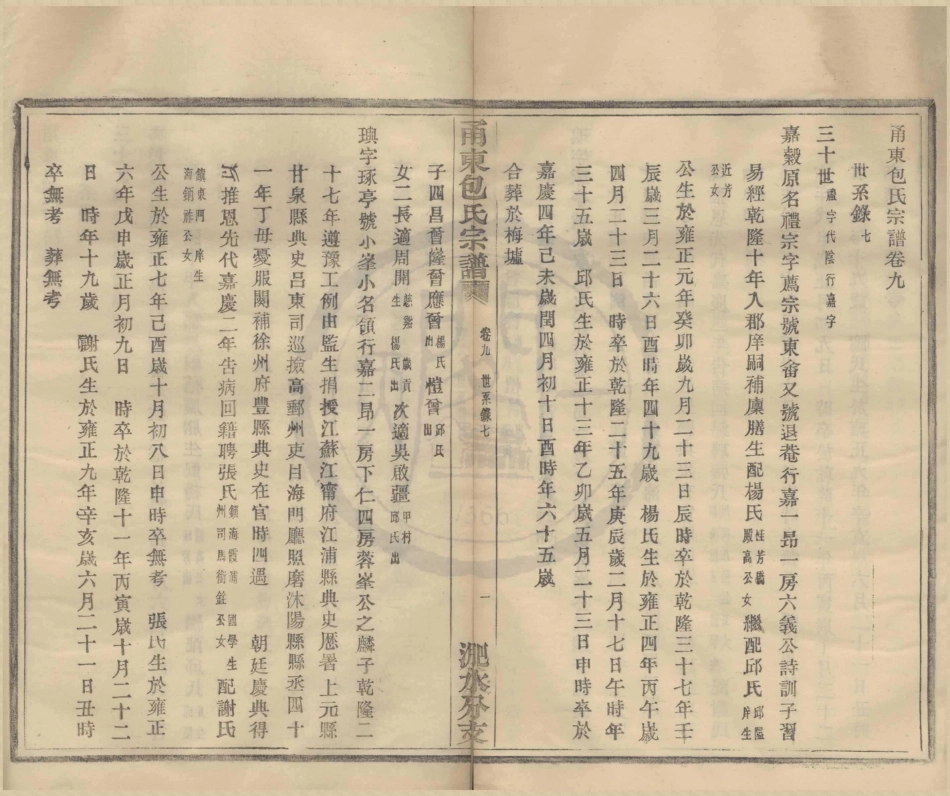 甬東包氏宗譜卷九
世系錄七
三十世禮字代陰行嘉字
嘉穀原名禮宗字薦宗號東畬又號退菴行嘉一昂一房六義公詩訓子習
易經乾隆十年入郡庠嗣補廩膳生配楊氏殿高公女繼配邱氏邱隘庠生
近芳公女
公生於雍正元年癸卯歲九月二十三日辰時卒於乾隆三十七年壬
辰歲三月二十六日酉時年四十九歲 楊氏生於雍正四年丙午歲
四月二十三日 時卒於乾隆二十五年庚辰歲二月十七日午時年
三十五歲 邱氏生於雍正十三年乙卯歲五月二十三日申時卒於
嘉慶四年己未歲閏四月初十日酉時年六十五歲
合葬於梅墟
甬東包氏宗譜 卷九 世系錄七 一 泚水分支
子四昌晉繼晉應晉楊氏出愷晉邱氏出
女二長適周開歲貢生楊氏出次適吳啟疆甲村邱氏出
璵字琢亭號小峯小名領行嘉二昂一房下仁四房蓉峯公之麟子乾隆二
十七年遵豫工例由監生捐授江蘇江甯府江浦縣典史歷署上元縣
甘泉縣典史呂東司巡撿高郵州吏目海門廳照磨沐陽縣縣丞四十
一年丁母憂服闋補徐州府豐縣典史在官時四遇 朝廷慶典得
推恩先代嘉慶二年告病回籍聘張氏國學生州司馬銜公女配謝氏
鎮東門庠生公女
公生於雍正七年己酉歲十月初八日申時卒無考 張氏生於雍正
六年戊申歲正月初九日 時卒於乾隆十一年丙寅歲十月二十二
日 時年十九歲 謝氏生於雍正九年辛亥歲六月二十一日丑時
卒無考 葬無考